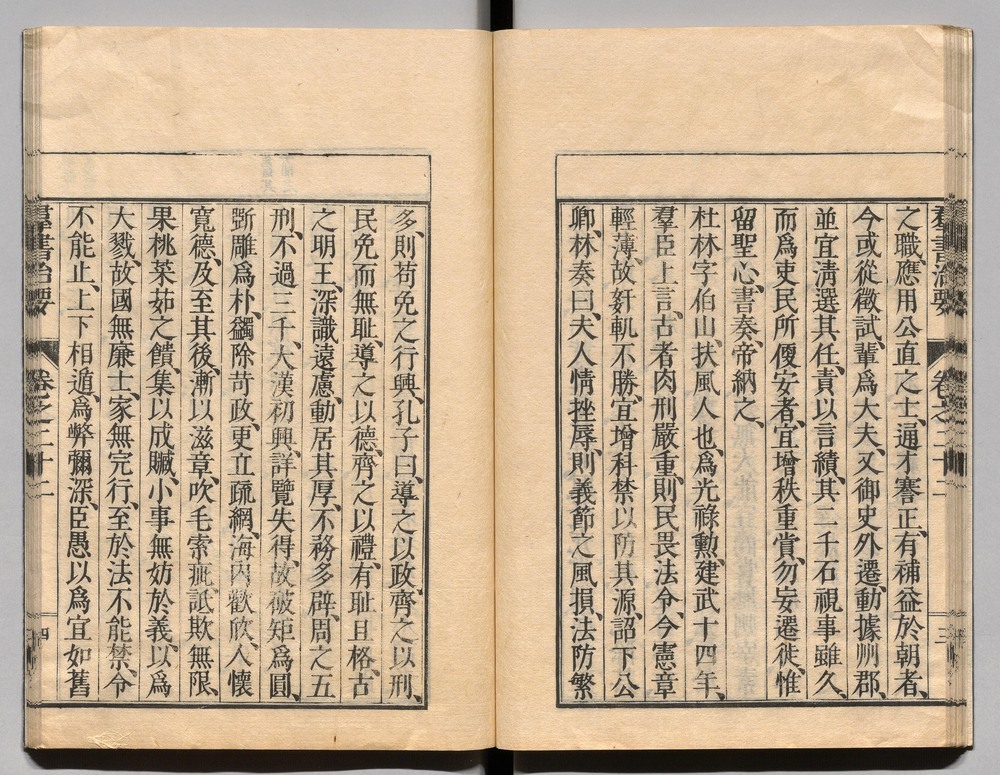 之職應用公直之士、通才謇正、有補益於朝者、
今或從徵試、輩爲大夫、又御史外遷、動據州郡、
並宜清選其任、責以言績、其二千石視事雖久、
而爲吏民所便安者、宜增秩重賞、勿妄遷徙、惟
留聖心、書奏、帝納之、
杜林字伯山、扶風人也、爲光祿勳、建武十四年、
羣臣上言、古者肉刑嚴重、則民畏法令、今憲章
輕薄、故姧軌不勝、宜增科禁以防其源、詔下公
卿、林奏曰、夫人情挫辱、則義節之風損、法防繁
多、則苟免之行興、孔子曰、導之以政、齊之以刑、
民免而無耻、導之以德、齊之以禮、有耻且格、古
之明王、深識遠慮、動居其厚、不務多辟、周之五
刑、不過三千、大漢初興、詳覽失得、故破矩爲圓、
斲雕爲朴、蠲除苛政、更立疏網、海内歡欣、人懷
寬德、及至其後、漸以滋章、吹毛索疵、詆欺無限、
果桃菜茹之饋、集以成贓、小事無妨於義、以爲
大戮、故國無廉士、家無完行、至於法不能禁、令
不能止、上下相遁、爲弊彌深、臣愚以爲宜如舊
羣書治要 卷之二十二 四